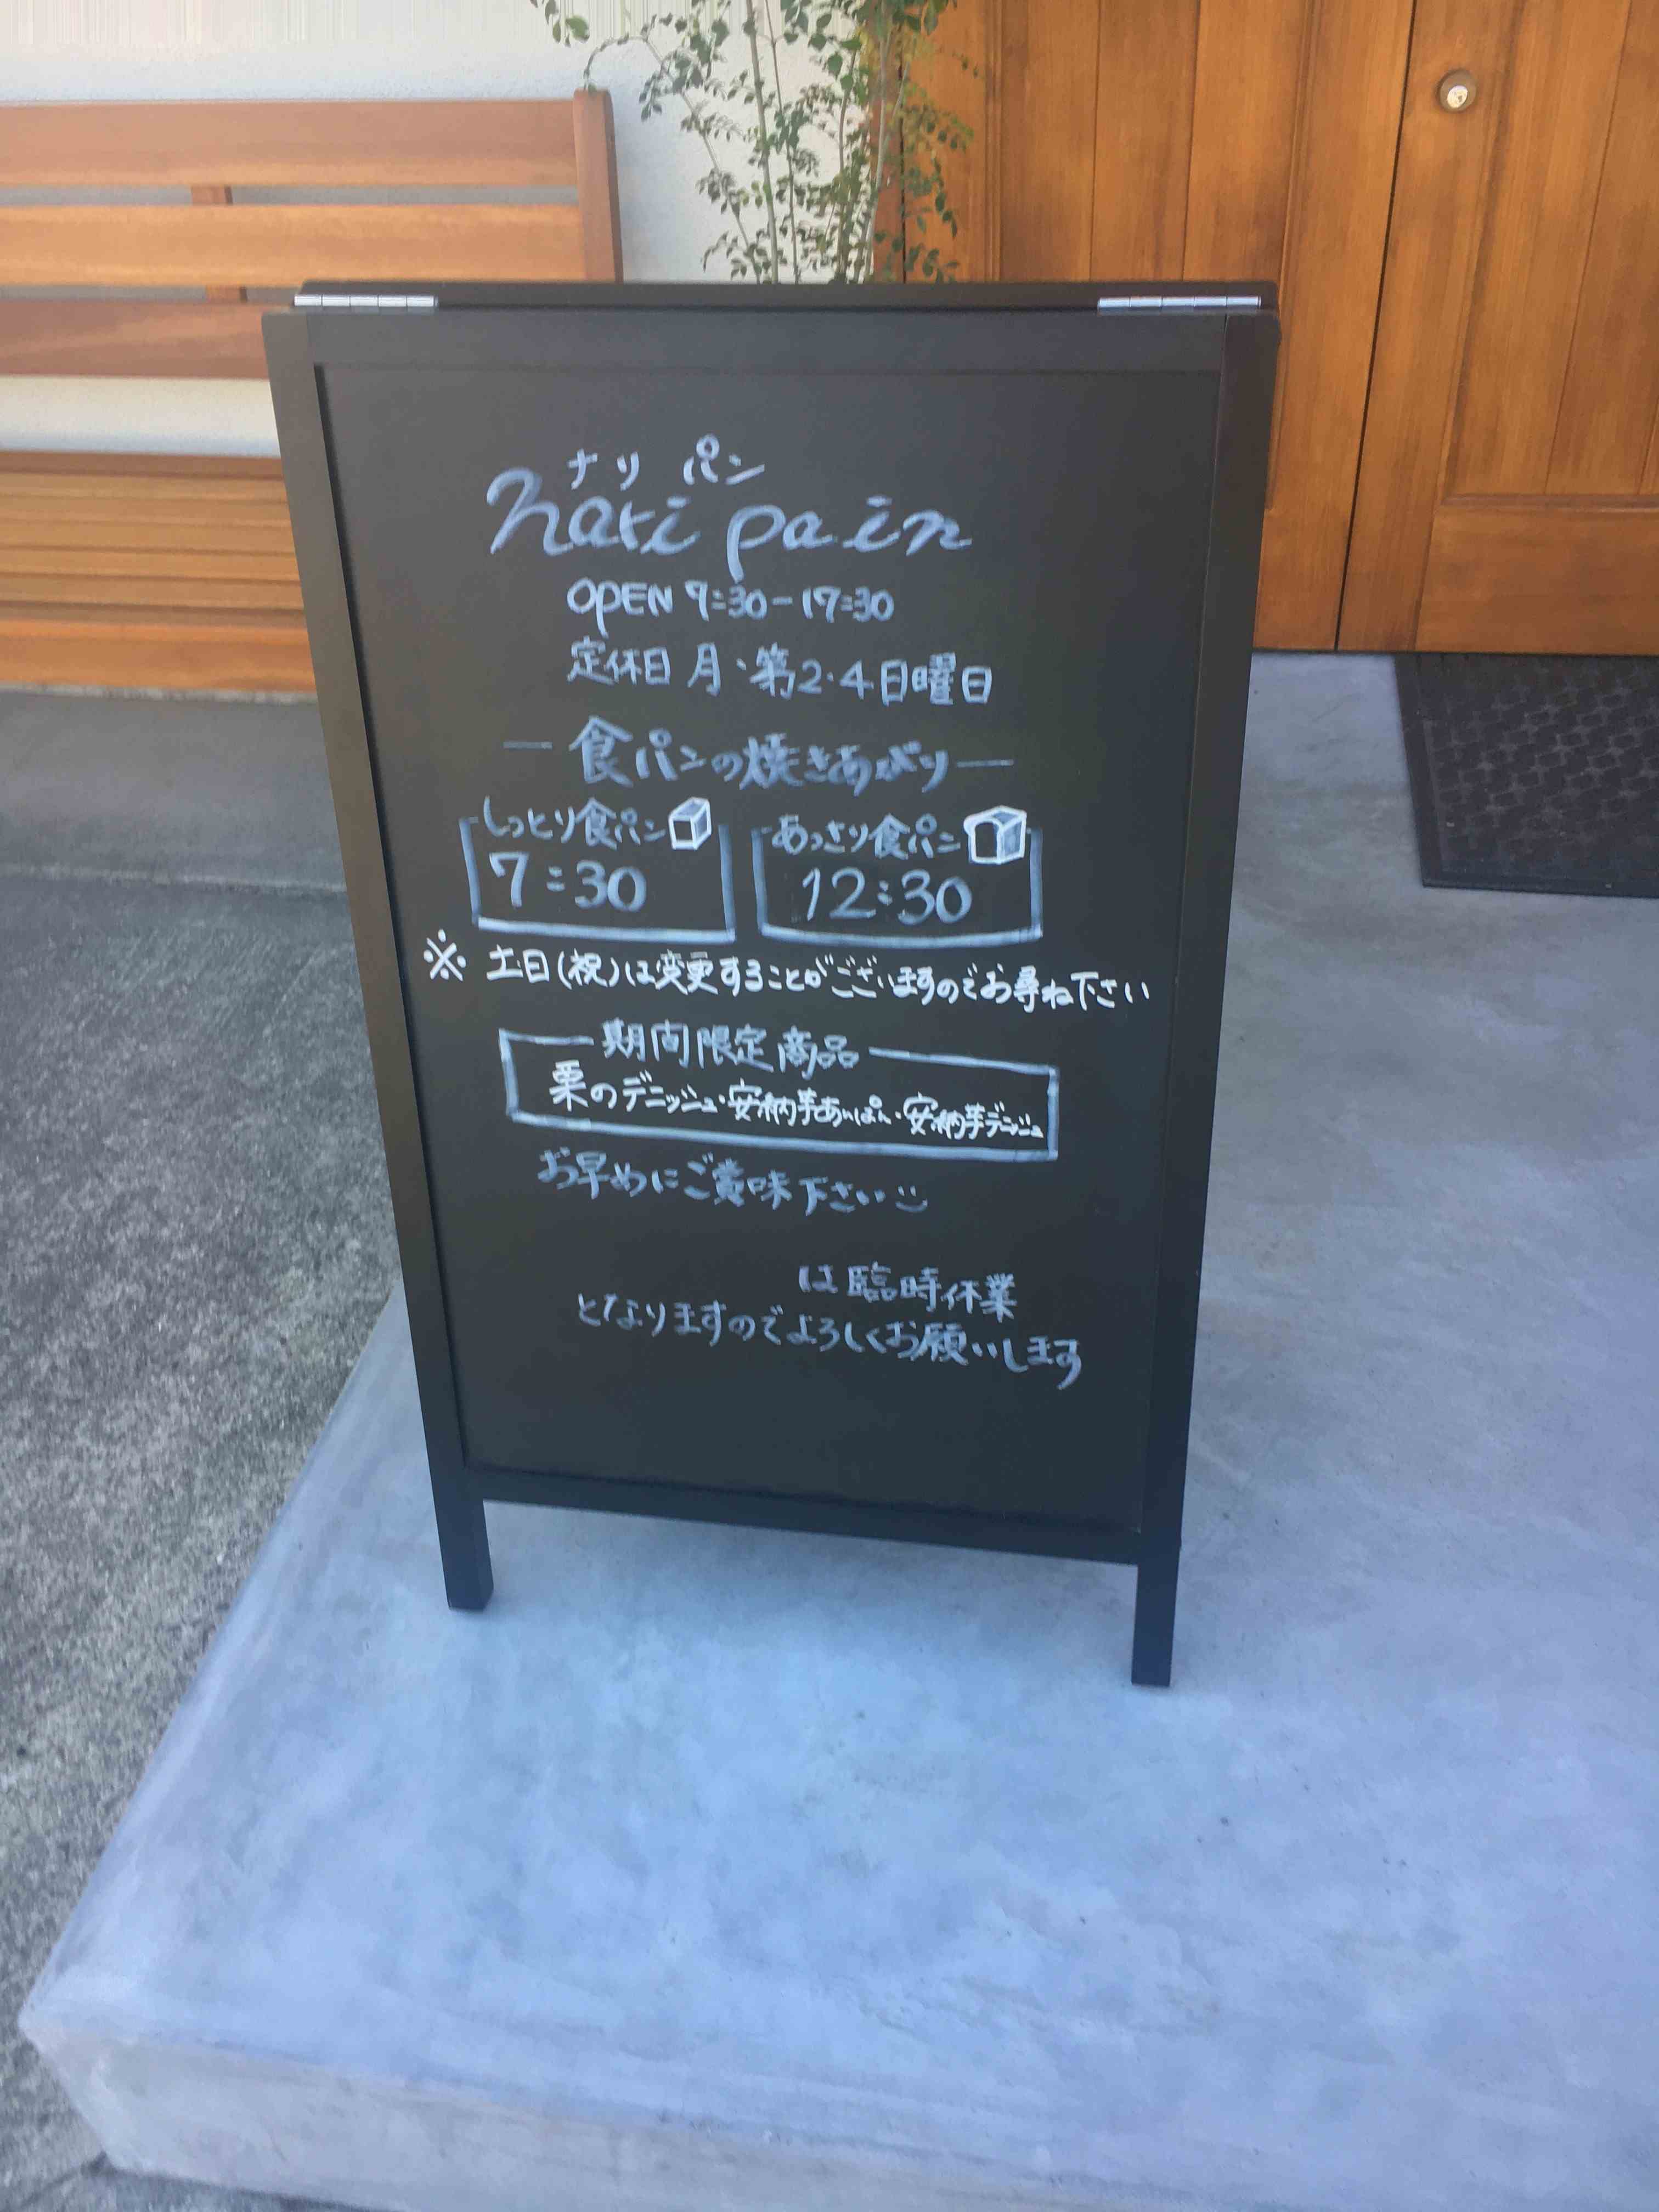 ナリ パン
nari pain
OPEN 7:30-17:30
定休日 月・第2・4日曜日
食パンの焼きあがり
しっとり食パン
7:30
あっさり食パン
12:30
※ 土日(祝)は変更することがございますのでお尋ね下さい
期間限定商品
栗のデニッシュ・安納芋あんぱん・安納芋デニッシュ
お早めにご賞味下さい
は臨時休業
となりますのでよろしくお願いします